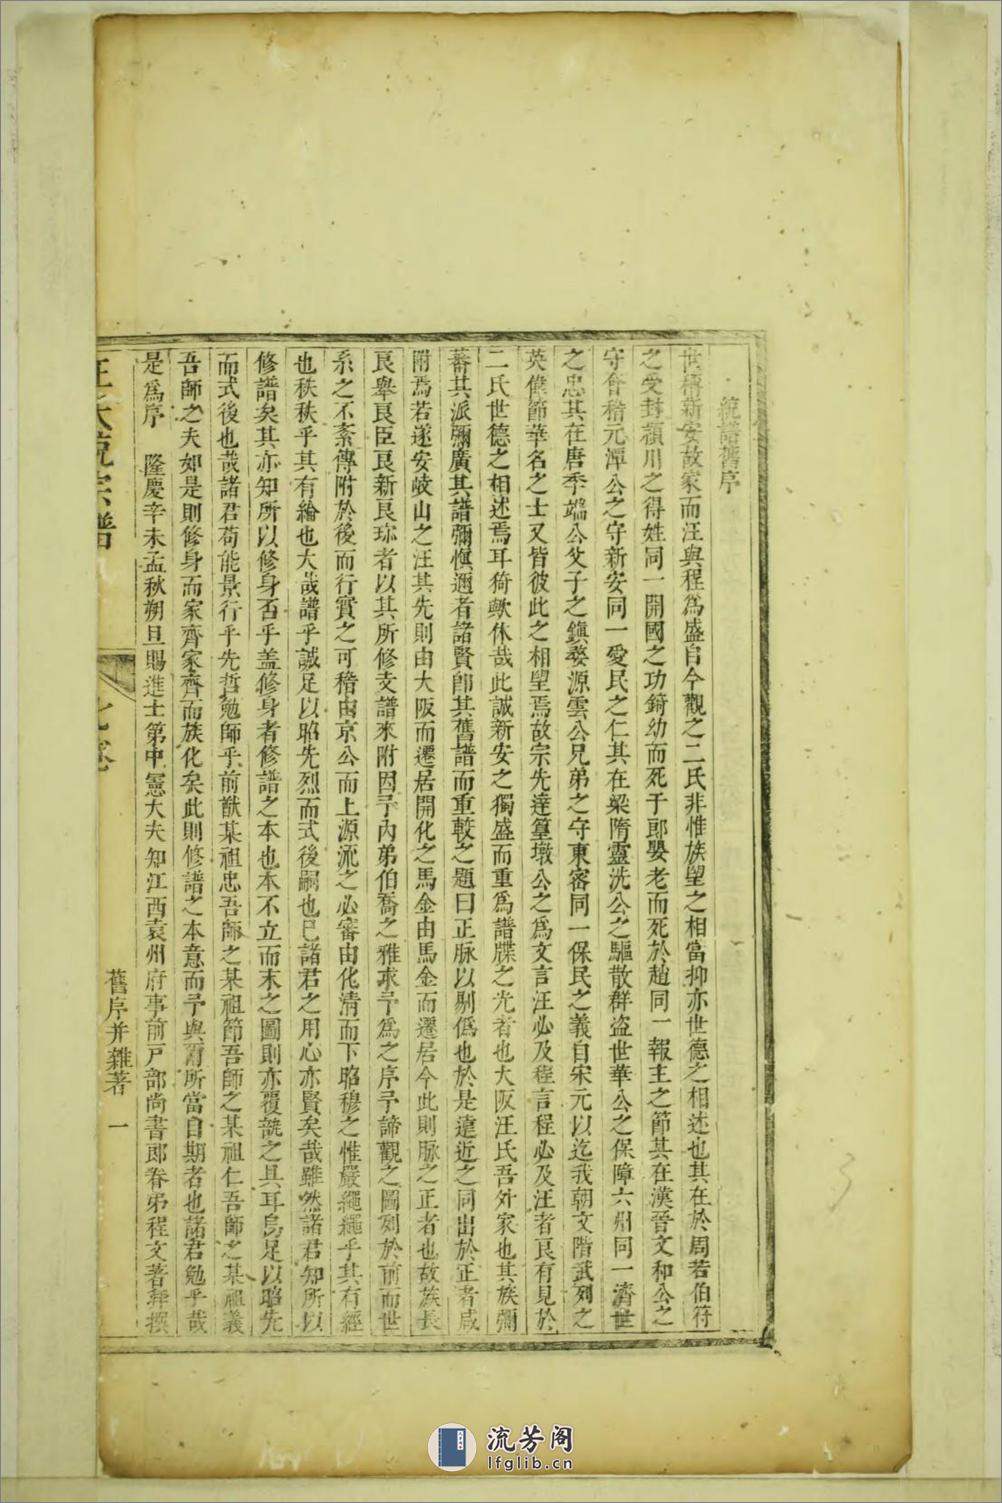 統譜舊序
世稱新安故家而汪與程為盛自今觀之二氏非惟族望之相當抑亦世德之相述也其在於周若伯符
之受封潁川之得姓同一開國之功錡幼而死于郎嬰老而死於趙同一報主之節其在漢晉文和公之
守會稽元潭公之守新安同一愛民之仁其在梁隋靈洗公之驅散群盜世華公之保障六州同一濟世
之忠其在唐季端公父子之鎮婺源雲公兄弟之守東密同一保民之義自宋元以迄我朝文階武列之
英偉節華名之士又皆彼此之相望焉故宗先達篁墩公之為文言汪必及程言程必及汪者良有見於
二氏世德之相述焉耳猗歟休哉此誠新安之獨盛而重為譜牒之光者也大阪汪氏吾外家也其族彌
蕃其派彌廣其譜彌慎邇者諸賢卽其舊譜而重較之題曰正脉以剔僞也於是遠近之同出於正者咸
附焉若遂安岐山之汪其先則由大阪而遷居開化之馬金由馬金而遷居今此則脈之正者也故族長
良舉良臣良新良琭者以其所修支譜來附因予內弟伯喬之雅求予為之序予諦觀之圖列於前而世
系之不紊傳附於後而行實之可稽由京公而上源流之必審由化清而下昭穆之惟嚴繩繩乎其有經
也秩秩乎其有綸也大哉譜乎誠足以昭先烈而式後嗣也已諸君之用心亦賢矣哉雖然諸君知所以
修譜矣其亦知所以修身否乎盖修身者修譜之本也本不立而末之圖則亦覆瓿之具耳烏足以昭先
而式後也哉諸君苟能景行乎先哲勉師乎前猷某祖忠吾師之某祖節吾師之某祖仁吾師之某祖義
吾師之夫如是則修身而家齊家齊而族化矣此則修譜之本意而予與爾所當自期者也諸君勉乎哉
是為序 隆慶辛未孟秋朔旦賜進士第中憲大夫知江西袁州府事前戶部尚書郎眷弟程文著拜撰
汪氏統宗譜 卷 舊序并雜著 一
3
流芳阁
lfglib.cn